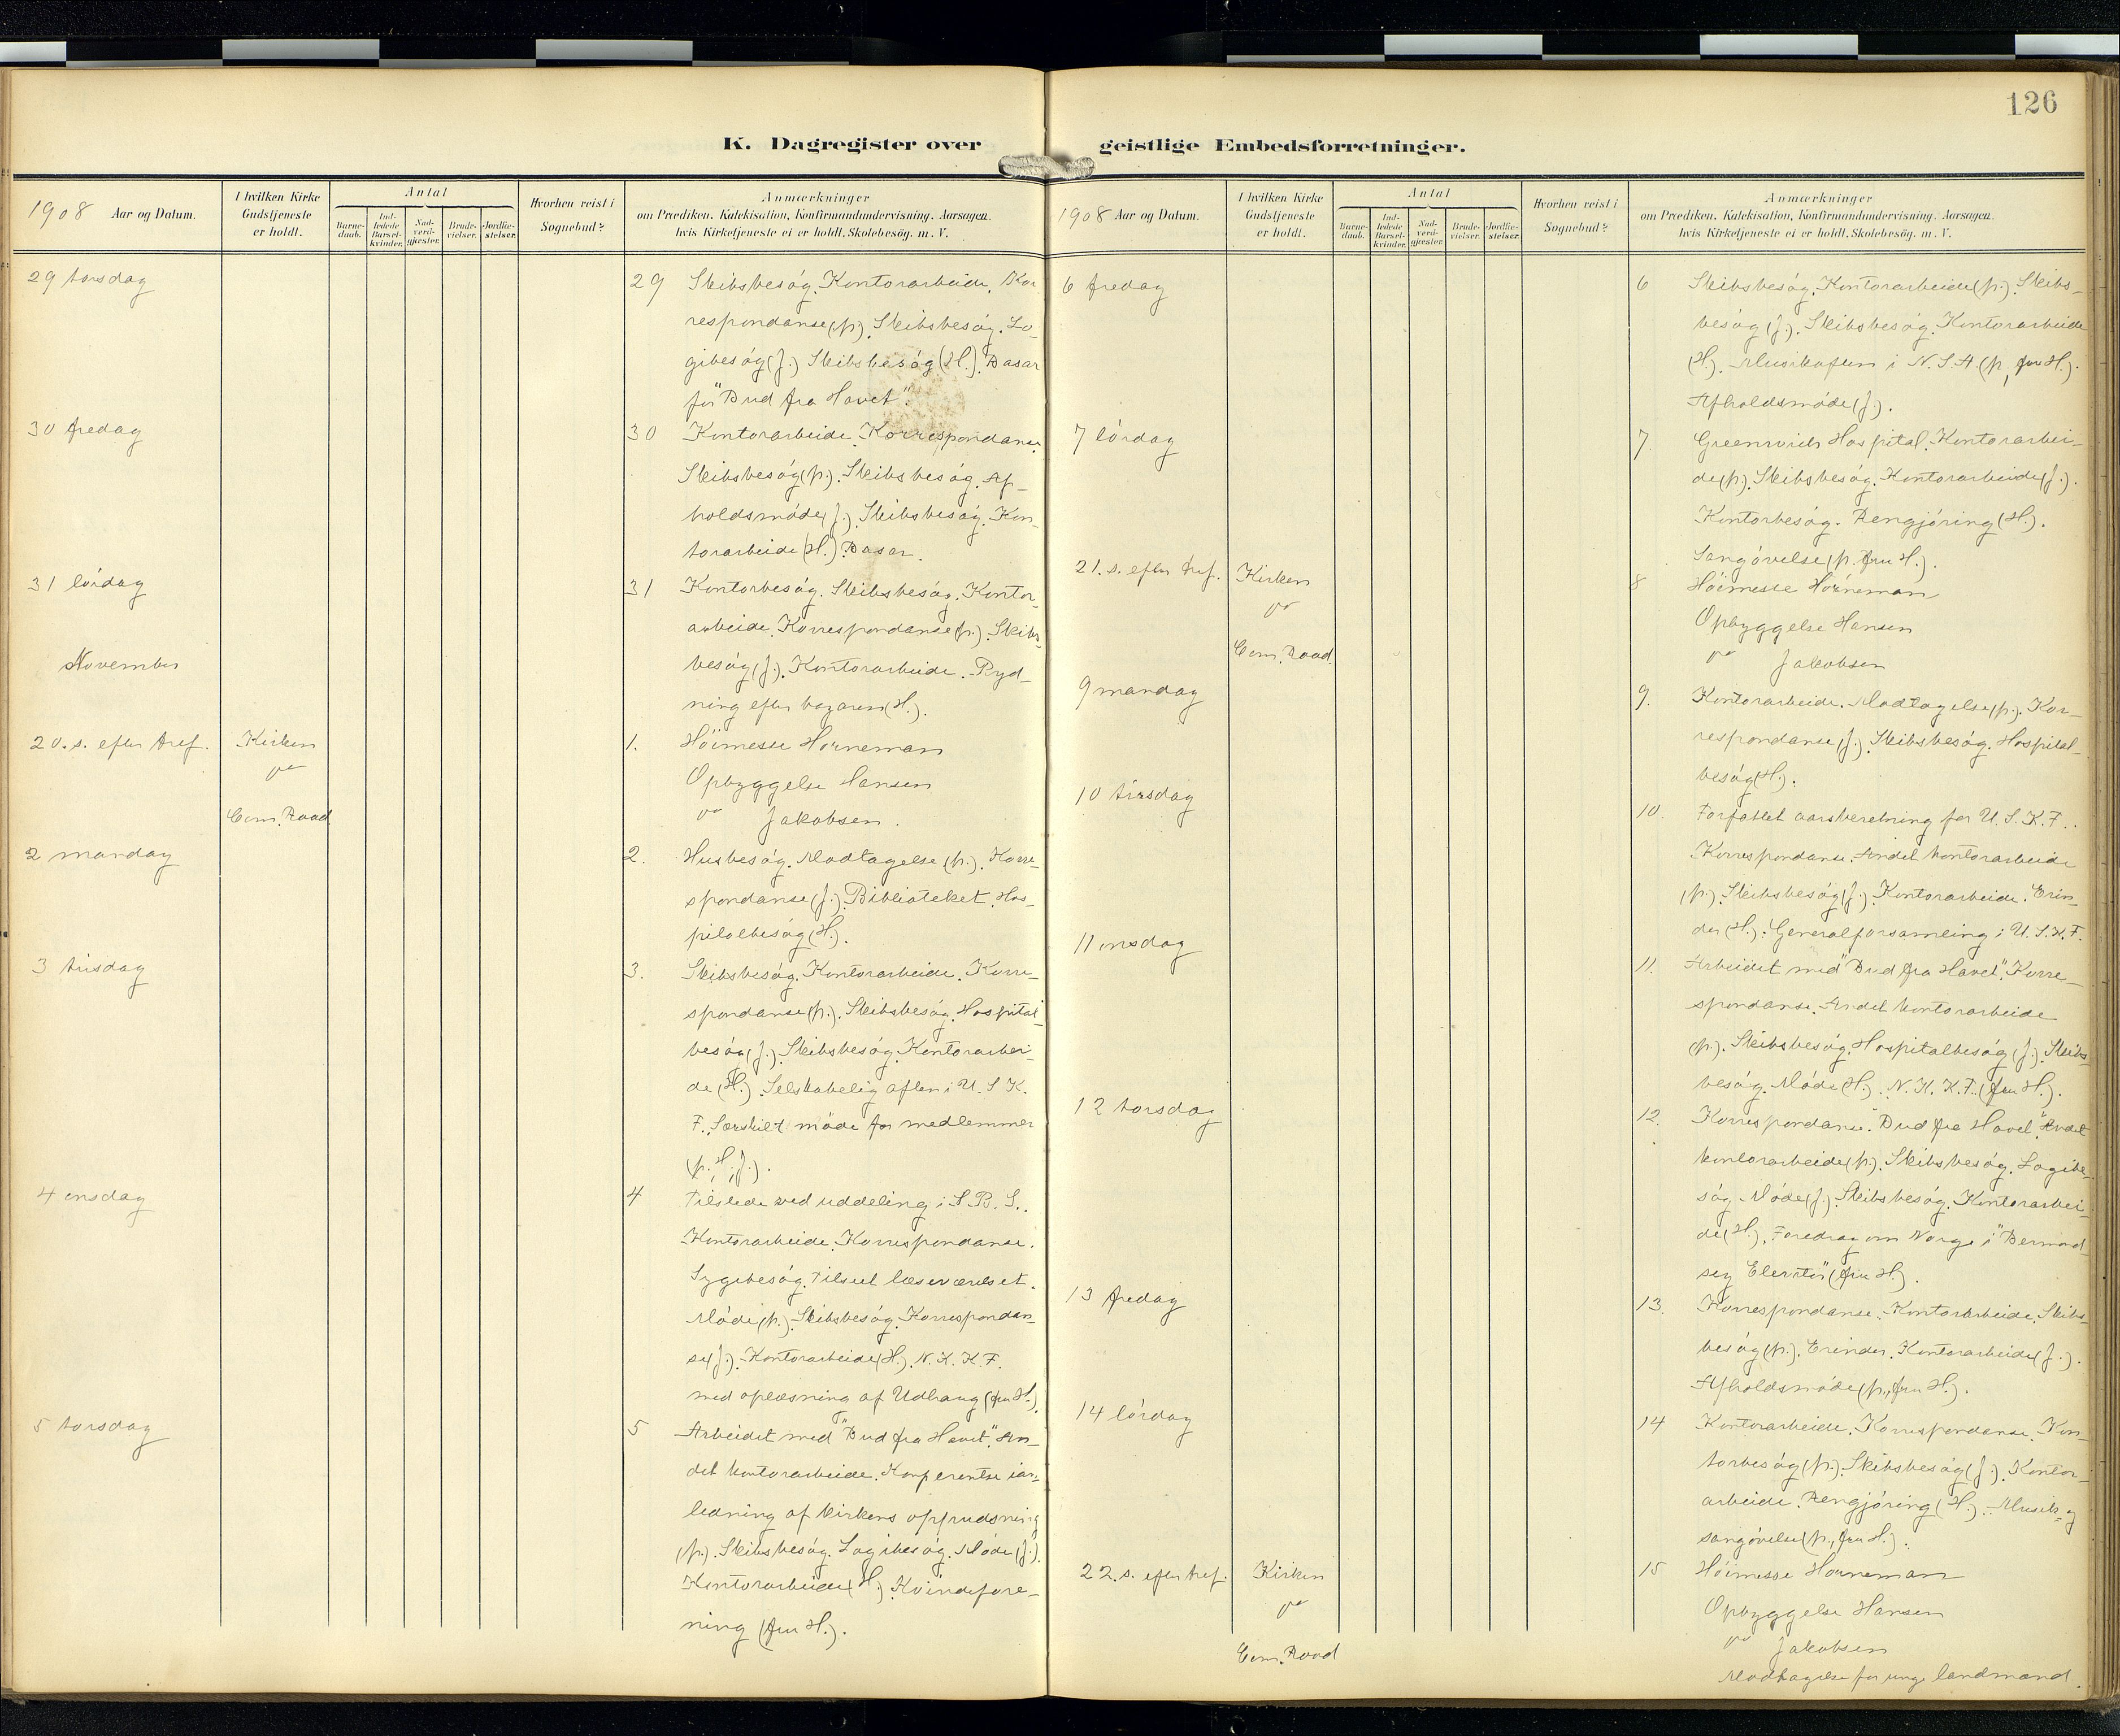 126
K. Dagregister over geistlige Embedsforretninger.
1908 Aar og Datum.
I hvilken Kirke Gudstjeneste er holdt.
Antal
Barne-daab.
Ind-ledede Barsel-kvinder.
Nad-verd-gjester.
Brude-vielser.
Jordfæ-stelser.
Hvorhen reist i Sognebud?
Anmærkninger
om Prædiken, Katekisation, Konfirmandundervisning. Aarsagen,
hvis Kirketjeneste ei er holdt. Skolebesøg. m. V.
29 torsdag
29 Skibsbesøg. Kontorarbeide, Kor
respondanse (p.). Skibsbesøg. Lo-
gibesøg (J.) Skibsbesøg (H.). Basar
for "Bud fra Havet".
30 fredag
30 Kontorarbeide. Korrespondanse.
Skibsbesøg (p.). Skibsbesøg. Af-
holdsmøde (J.). Skibsbesøg. Kon-
torarbeide (H.) Basar.
31 lørdag
31 Kontorbesøg. Skibsbesøg. Kontor-
arbeide. Korrespondanse (p.). Skibs-
besøg (J.). Kontorarbeide. Ryd-
ning efter bazaren (H.).
November
20. s. efter tref. Kirken
1. Höimesse Horneman
Opbyggelse Hansen
Com. Road
Jakobsen.
2 mandag
2. Husbesøg. Modtagelse (p.). Korre-
spondanse (J.). Biblioteket. Hos-
pitalbesøg (H.).
3 tirsdag
3. Skibsbesøg. Kontorarbeide. Korre-
spondanse (p.). Skibsbesøg. Hospital-
besøg (J.). Skibsbesøg. Kontorarbei-
de (H.). Selskabelig aften i U. S K.
F. Særskilt møde for medlemmer
(p. H. J.).
4 onsdag
4 Tilstede ved uddeling i S. B. S..
Kontorarbeide. Korrespondanse.
Sygebesøg. Tilseet læseværelset.
Møde (p.). Skibsbesøg. Korrespondan-
se (J.). Kontorarbeide (H.). N. K. K. F.
med oplæsning af Udhaug (fru H.).
5 torsdag
5 Arbeidet med "Bud fra Havet". An-
det kontorarbeide. Konferentse ian-
ledning af kirkens oppudsning
(p.). Skibsbesøg. Logibesøg. Møde (J.).
Kontorarbeide (H.). Kvindefore-
ning (fru H.).
1908 Aar og Datum.
I hvilken Kirke Gudstjeneste er holdt.
Antal
Barne-daab.
Ind-ledede Barsel-kvinder.
Nad-verd-gjester.
Brude-vielser.
Jordfæ-stelser.
Hvorhen reist i Sognebud?
Anmærkninger
om Prædiken, Katekisation, Konfirmandundervisning. Aarsagen,
hvis Kirketjeneste ei er holdt. Skolebesøg. m. V.
6 fredag
6 Skibsbesøg. Kontorarbeide (p.). Skibs-
besøg (J.). Skibsbesøg. Kontorarbeide
(H.). Musikaften i N. S. H. (p, fru H.).
Afholdsmøde (J.).
7 lørdag
7 Greenwich Hospital. Kontorarbei-
de (p.). Skibsbesøg. Kontorarbeide (J.).
Kontorbesøg. Rengjøring (H.).
Sangøvelse (p. fru H.).
21. s. efter tref. Kirken
8 Höimesse Horneman
Opbyggelse Hansen
Com. Road
Jakobsen
9 mandag
9. Kontorarbeide. Modtagelse (p.). Kor-
respondanse (J.). Skibsbesøg. Hospital-
besøg (H.).
10 tirsdag
10. Forfattet aarsberetning for U. S. K. F..
Korrespondanse. Andet kontorarbeide
(p.). Skibsbesøg (J.). Kontorarbeide. Erin-
der (H.). Generalforsamling i U. S. K. F.
11 onsdag
11. Arbeidet med "Bud fra Havet". Korre-
spondanse. Andet kontorarbeide
(p.). Skibsbesøg. Hospitalbesøg (J.). Skibs-
besøg. Møde (H.). N. K. K. F. (fru H.).
12 torsdag
12. Korrespondanse. "Bud fra Havet". Andet
kontorarbeide (p.). Skibsbesøg. Logibe-
søg. Møde (J.). Skibsbesøg. Kontorarbei-
de (H.). Foredrag om Norge i "Bermond-
sey (fru H.).
13 fredag
13. Korrespondanse. Kontorarbeide. Skibs-
besøg (p.). Erinder. Kontorarbeide (J.).
Afholdsmøde (p., fru H.).
14 lørdag
14 Kontorarbeide. Korrespondanse. Kon-
torbesøg (p.). Skibsbesøg (J.). Kontor-
arbeide. Rengjøring (H.). Musik- og
sangøvelse (p., fru H.).
22. s. efter tref. Kirken
15 Höimesse Horneman
Opbyggelse Hansen
Com. Road
Jakobsen
Modtagelse for unge landmænd.